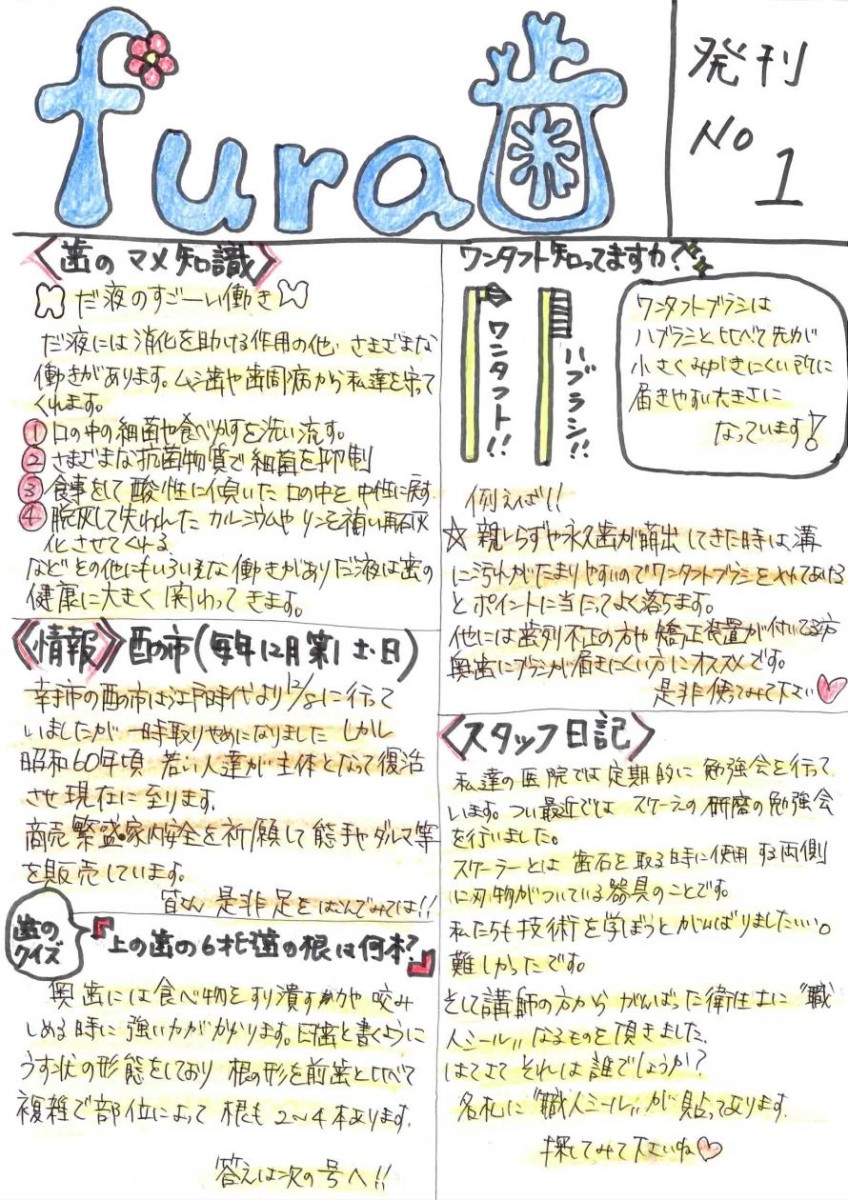 fura歯
発刊
No 1
〈歯のマメ知識〉
だ液のすごーい働き
だ液には消化を助ける作用の他、さまざまな
働きがあります。ムシ歯や歯周病から私達を守って
くれます。
① 口の中の細菌や食べかすを洗い流す。
② さまざまな抗菌物質で細菌を抑制
③ 食事をして酸性に傾いた口の中を中性に戻す
④ 脱灰して失われたカルシウムやリンを補い再石灰
化させてくれる
などその他にもいろいろな働きがありだ液は歯の
健康に大きく関わってきます。
《情報》酉の市(毎年12月第1土・日)
幸手市の酉の市は江戸時代より12/8に行って
いましたが一時取りやめになりました しかし
昭和60年頃 若い人達が主体となって復活
させ現在に至ります。
商売繁盛・家内安全を祈願して熊手やダルマ等
を販売しています。
皆さん 是非足をはこんでみては!!
歯の
クイズ
『上の歯の6才臼歯の根は何本?』
奥歯には食べ物をすり潰す力や 咬み
しめる時に強い力がかかります。臼歯と書くように
うす状の形態をしており 根の形を前歯と比べて
複雑で部位によって 根も 2~4本あります。
答えは次の号へ!!
ワンタフト知ってますか?
ワンタフト!!
ハブラシ!!
ワンタフトブラシは
ハブラシと比べて先が
小さくみがきにくい所に
届きやすい大きさに
なっています!
例えば!!
☆ 親しらずや永久歯が萌出してきた時は、溝
に汚れがたまりやすいのでワンタフトブラシを入れてあげる
とポイントに当たってよく落ちます。
他には歯列不正の方や矯正装置が付いてる方
奥歯にブラシが届きにくい方にオススメです。
是非使ってみて下さい♡
〈スタッフ日記〉
私達の医院では定期的に勉強会を行って
います。つい最近では スケーラーの研磨の勉強会
を行いました。
スケーラーとは 歯石を取る時に使用する両側
に刃物がついている器具のことです。
私たちも技術を学ぼうとがんばりましたいい。
難しかったです。
そして講師の方から がんばった衛生士に〝職
人シール〟なるものを頂きました。
はてさて それは誰でしょうか?
名札に〝職人シール〟が貼ってあります。
探してみて下さいね♡